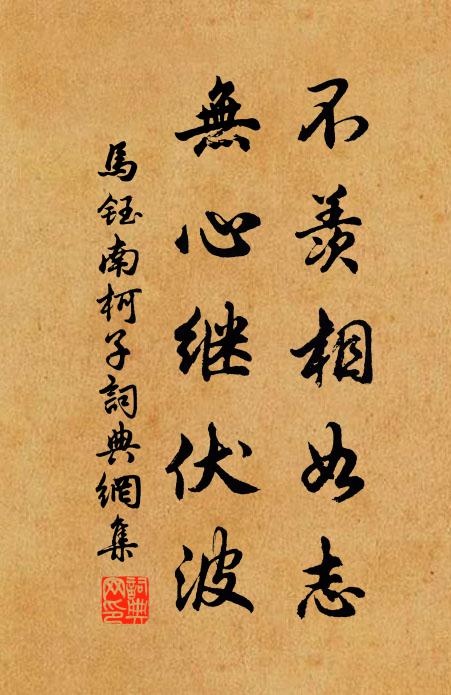 不羨相如志
無心继伏波
馬鈺南柯子詞典網集
詞典網印